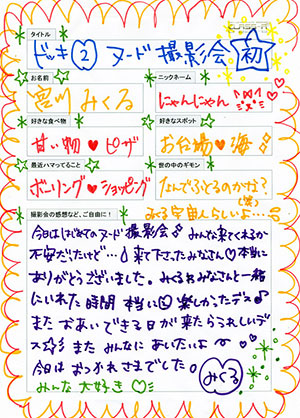 タイトル
ドッキ② ヌード撮影会 初
お名前
宮川 みくる
ニックネーム
にゃんにゃん
好きな食べ物
甘い物♥ピザ
好きなスポット
お台場♥海
最近ハマってること
ボーリング♥ショッピング
世の中のギモン
なんでふとるのかな?
(笑)
みる宇宙人らしいよ…
撮影会の感想など、ご自由に!
今日ははじめてのヌード撮影会♪ みんな来てくれるか
不安だったけど…! 来て下さったみなさん♡本当に
ありがとうございました。みくるもみなさんと一緒
にいれた時間 本当に 楽しかったデス♪
また お会いできる日が来たらうれしいデ
ス☆彡 また みんなに あいたいよぉ
今日は おつかれさまでした。 みくる
みんな 大好き♡